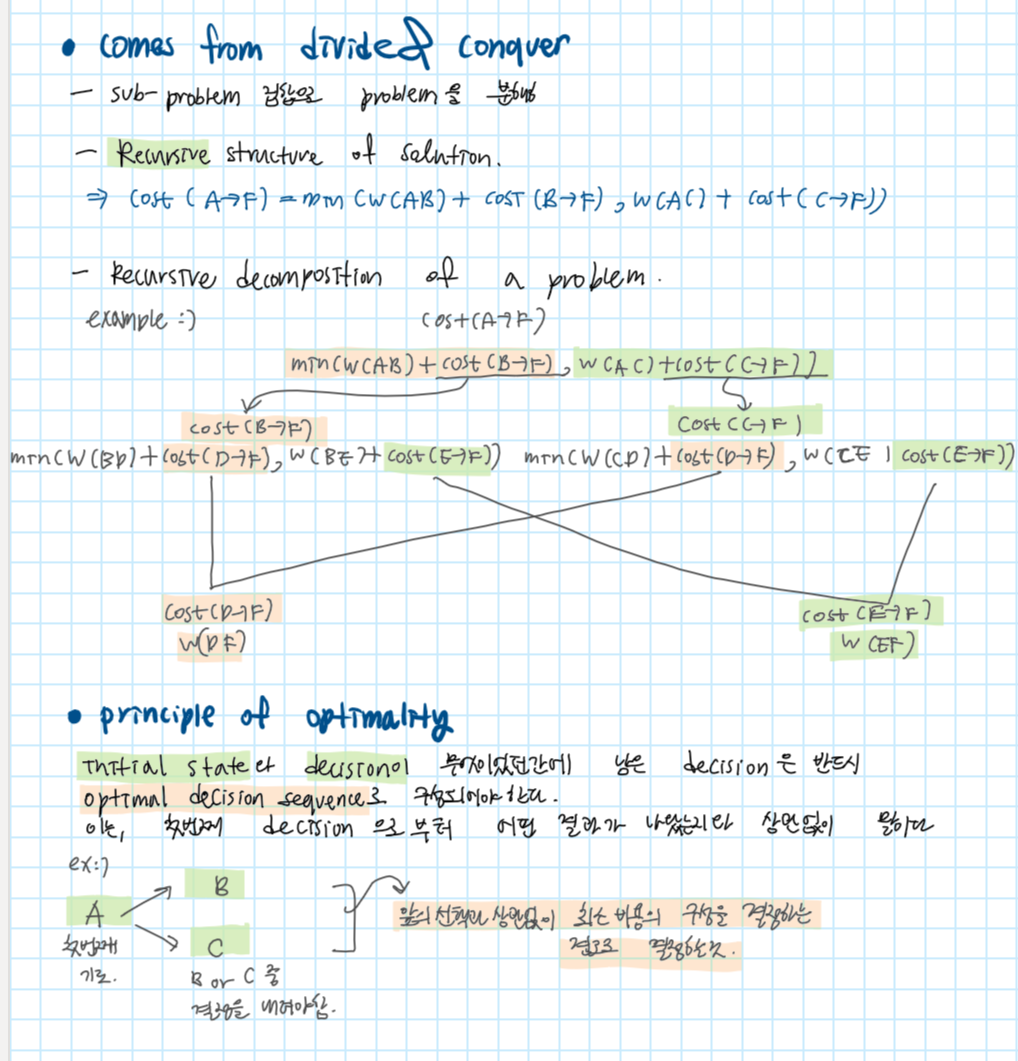 • comes from divide & conquer
- sub-problem 집합으로 problem을 분해함
- Recursive structure of solution.
⇒ cost (A→F) = min (W(AB) + cost (B→F), W(AC) + cost (C→F))
- Recursive decomposition of a problem.
example :) cost(A→F)
min(W(AB) + cost(B→F), W(AC) + cost(C→F))
cost(B→F) cost(C→F)
min(W(BD) + cost(D→F), W(BE) + cost(E→F)) min(W(CD) + cost(D→F), W(CE) cost(E→F))
cost(D→F) cost(E→F)
W(DF) W(EF)
• principle of optimality
initial state와 decision이 무엇이었던간에 남은 decision은 반드시
optimal decision sequence로 구성되어야 한다.
이는, 첫번째 decision으로부터 어떤 결과가 나왔는지와 상관없이
ex:)
B
A
C
첫번째
기로.
B or C 중
결정을 내려야함.
앞의 선택과 상관없이 최소 비용의 구성을 결정하는
경로로 결정하는것.